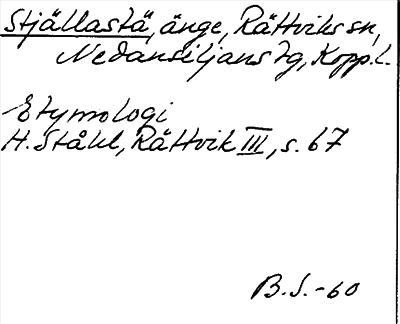 Stjällastä, änge, Rättviks sn,
Nedansiljans tg, Kopp. l.
Etymologi
H. Ståhl, Rättvik III, s. 67
B.S.-60